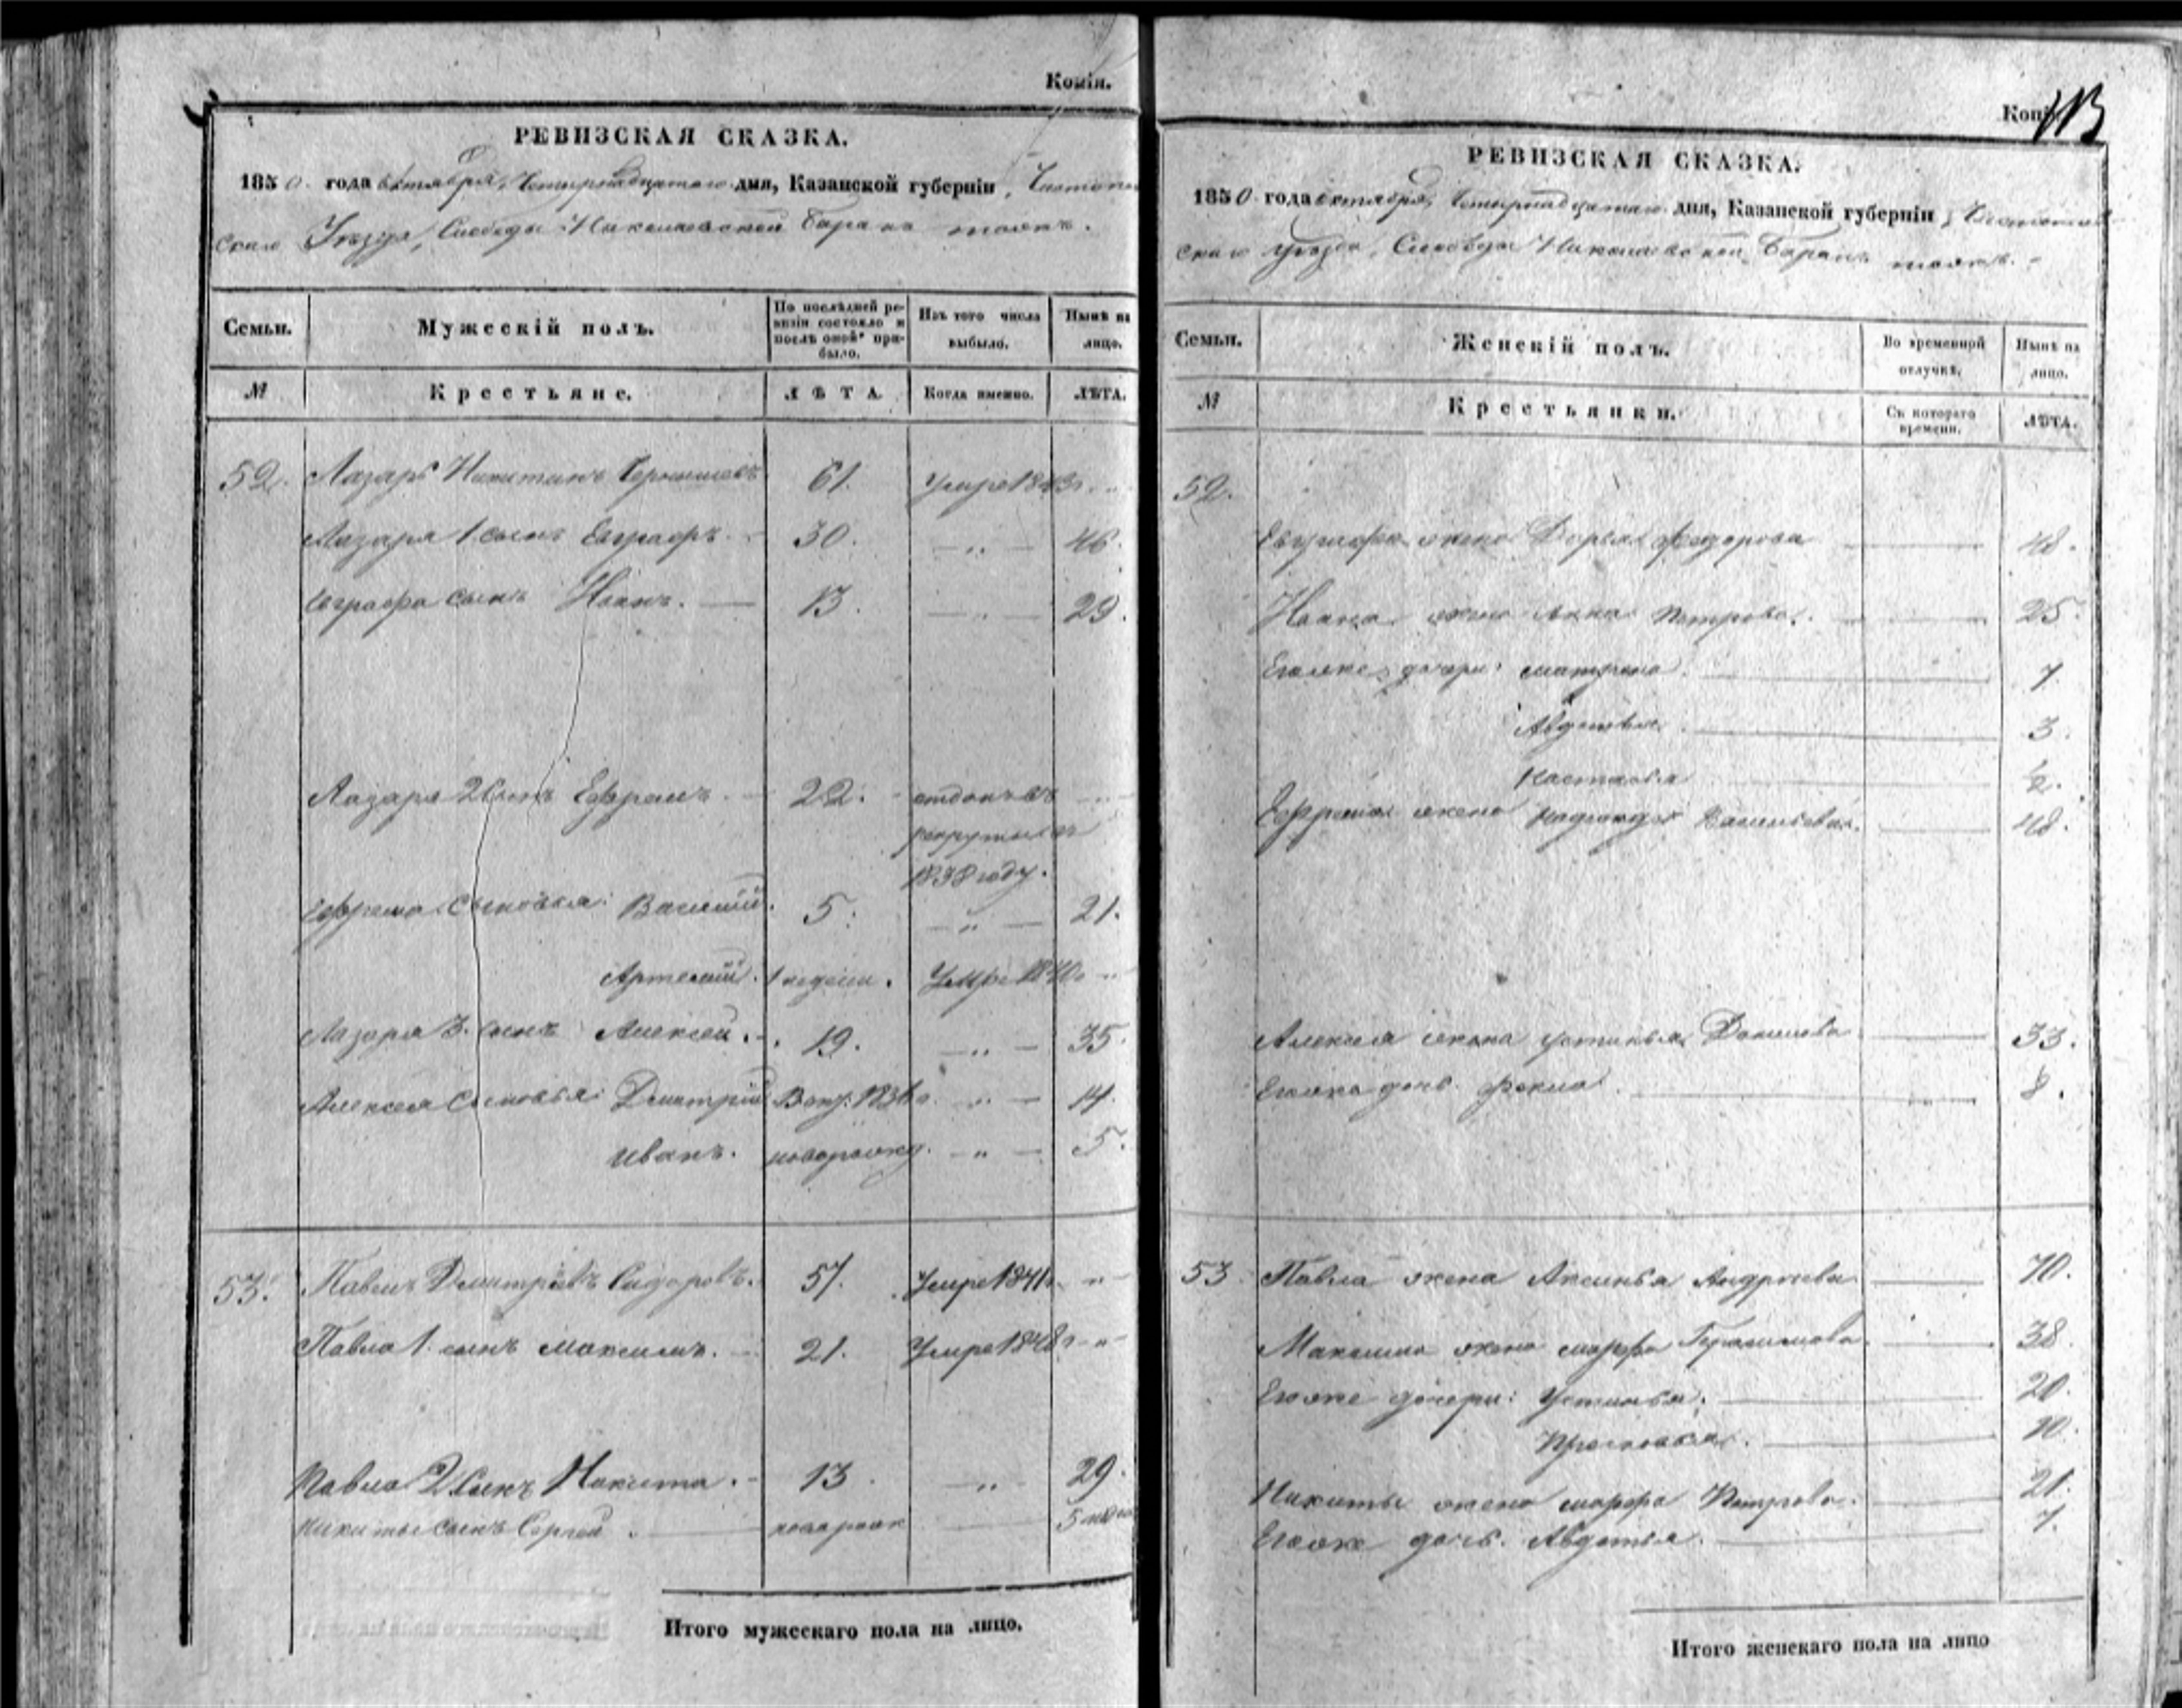 Копія.
РЕВИЗСКАЯ СКАЗКА.
1850. года октября, Четырнадцатаго дня, Казанской губерніи, Чистополь
скаго Уѣзда, Слободы Николаевской Баранъ тожъ.
Семьи. Мужескій полъ. По послѣдней ревизіи состояло и послѣ оной прибыло. Изъ того числа выбыло. Нынѣ на лицо.
№ Крестьяне. ЛѢТА. Когда именно. ЛѢТА.
52. Лазарь Никитинъ 61. Умре 1843 г. "
Лазаря 1 сынъ Евграфъ. 30. — " — 46.
Евграфа сынъ Иоанъ. — 13. — " — 29.
Лазаря 2 сынъ Ефремъ. 22. отданъ въ
рекруты въ
1838 году.
Ефрема сыновья: Василій. 5. — " — 21.
Артемій. 1 недели. Умре 1840 г. "
Лазаря 3. сынъ Алексей. 19. — " — 35.
Алексея сыновья: Дмитрій 1836 г. " — 14.
Иванъ. новорожд. — " — 5.
53. Павелъ Дмитріевъ Сидоровъ. 57. Умре 1841 г. "
Павла 1. сынъ Максимъ. — 21. Умре 1848 г. "
Павла 2 сынъ Никита. 13. — " 29.
Никиты сынъ Сергей. новорож 5 недел
Итого мужескаго пола на лицо.
Копія 113
РЕВИЗСКАЯ СКАЗКА.
1850 года октября, Четырнадцатаго дня, Казанской губерніи, Чистополь
скаго уѣзда, Слободы Николаевской Баранъ тожъ.
Семьи. Женскій полъ. Во временной отлучкѣ. Нынѣ на лицо.
№ Крестьянки. Съ котораго времени. ЛѢТА.
52.
Евграфа жена Дарья Федорова 48.
Иоана жена Анна Петрова. 25.
Ея же дочери: Матрена. 7.
Авдотья 3.
Настасья ½.
Ефрема жена Васильева. 48.
Алексея жена Устинья Данилова 33.
Ея же дочь Фекла. 8.
53. Павла жена Аксинья Андреева 70.
Максима жена Марфа Герасимова. 38.
Ея же дочери: Устинья. 20.
Прасковья. 10.
Никиты жена Марфа Петрова. 21.
Ея же дочь. Авдотья. 7.
Итого женскаго пола на лицо